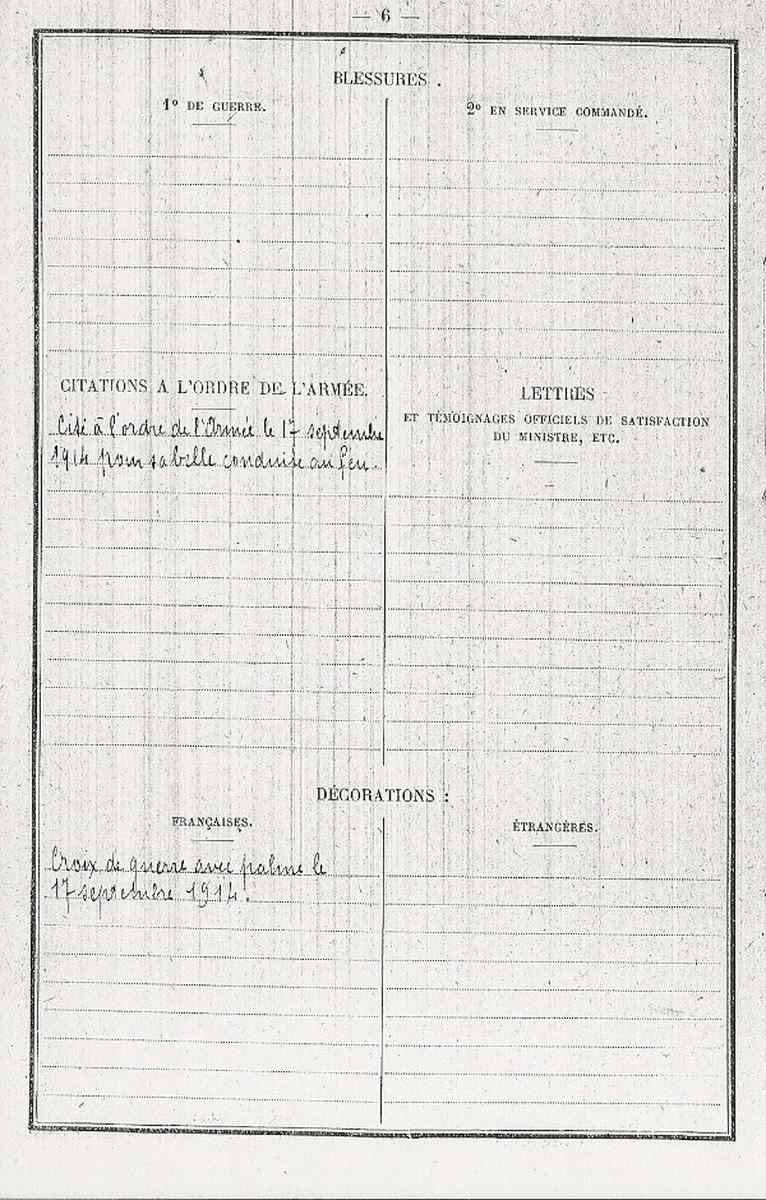 — 6 —
BLESSURES.
1º DE GUERRE.
2º EN SERVICE COMMANDÉ.
CITATIONS A L'ORDRE DE L'ARMÉE.
Cité à l'ordre de l'Armée le 17 septembre
1914 pour sa belle conduite au feu.
LETTRES
ET TÉMOIGNAGES OFFICIELS DE SATISFACTION
DU MINISTRE, ETC.
DÉCORATIONS :
FRANÇAISES.
Croix de guerre avec palme le
17 septembre 1914.
ÉTRANGÈRES.